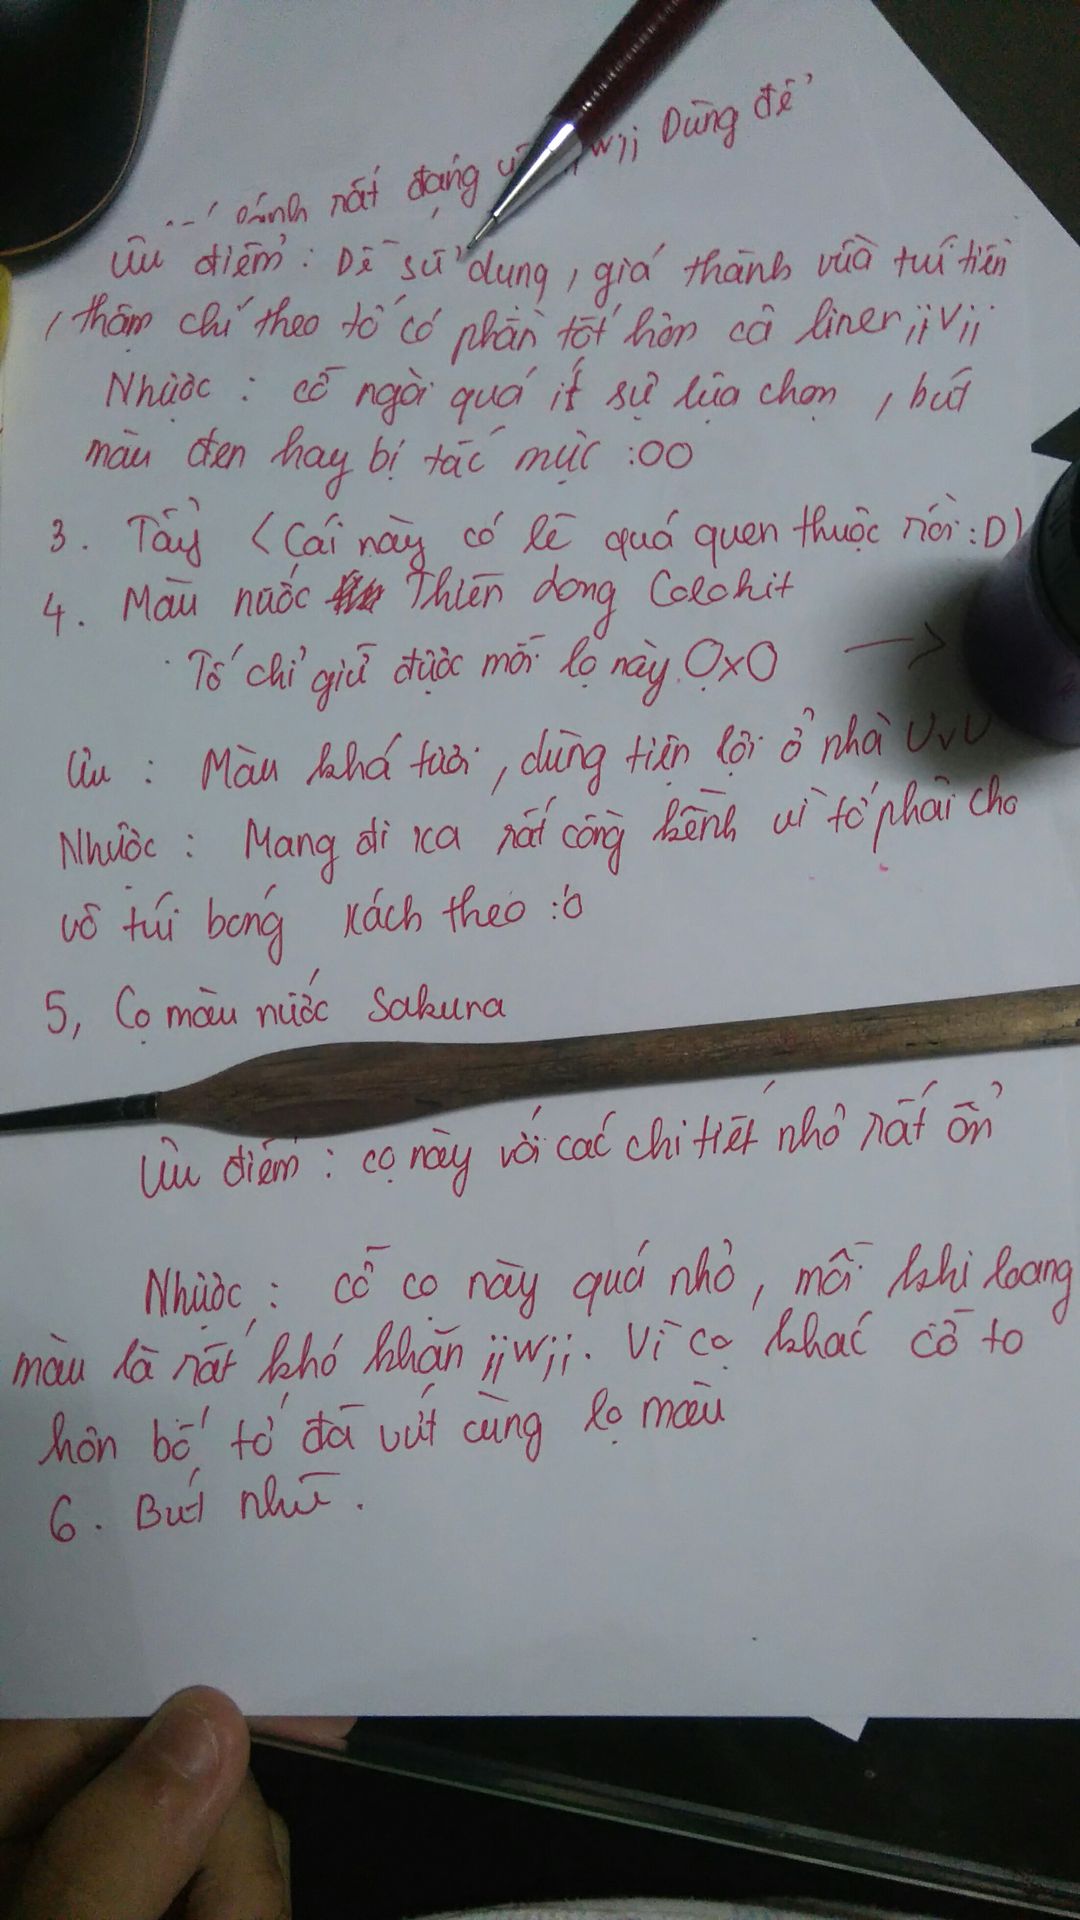 rất đáng Dùng để
Ưu điểm : Dễ sử dụng , giá thành vừa túi tiền
, thậm chí theo tớ có phần tốt hơn cả liner ;;v;;
Nhược : cỡ ngòi quá ít sự lựa chọn , bút
màu đen hay bị tắc mực :OO
3. Tẩy (Cái này có lẽ quá quen thuộc rồi :D)
4. Màu nước Thiên dong Colokit
Tớ chỉ giữ được mỗi lọ này OxO →
Ưu : Màu khá tươi , dùng tiện lợi ở nhà UvU
Nhược : Mang đi xa rất cồng kềnh vì tớ phải cho
vô túi bóng xách theo :'0
5, Cọ màu nước Sakura
Ưu điểm : cọ này với các chi tiết nhỏ rất ổn
Nhược : cỡ cọ này quá nhỏ , mỗi khi loang
màu là rất khó khăn ;;w;;. Vì cọ khác cỡ to
hơn bố tớ đã vứt cùng lọ màu
6. Bút nhũ .